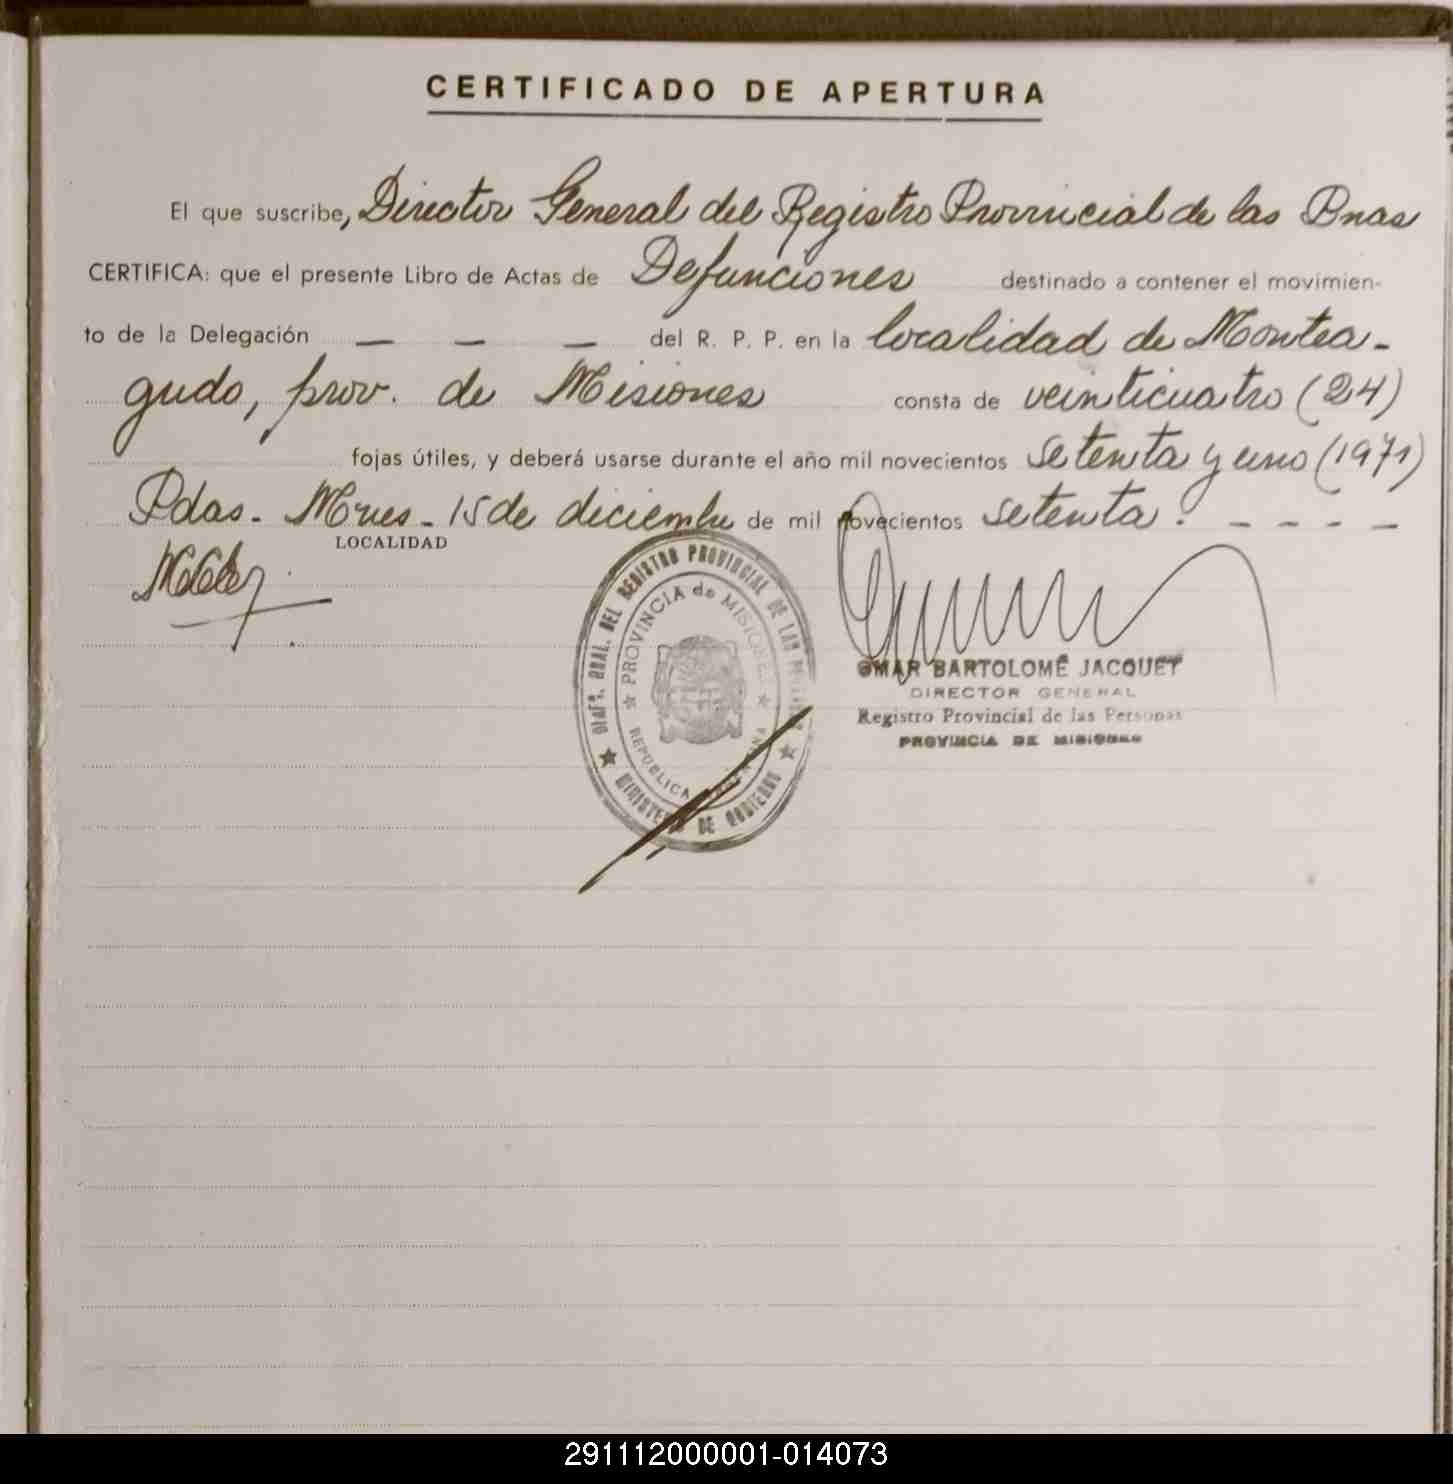 CERTIFICADO DE APERTURA
El que suscribe, Director General del Registro Provincial de las Pnas
CERTIFICA: que el presente Libro de Actas de Defunciones destinado a contener el movimien-
to de la Delegación — — — del R. P. P. en la localidad de Montea-
gudo, prov. de Misiones consta de veinticuatro (24)
fojas útiles, y deberá usarse durante el año mil novecientos setenta y uno (1971)
Pdas. Mnes - 15 de diciembre de mil novecientos setenta. - - - -
LOCALIDAD
GRAL. DEL REGISTRO PROVINCIAL DE LAS
PROVINCIA de MISIONES
REPUBLICA ARGENTINA
MINISTERIO DE GOBIERNO
OMAR BARTOLOMÉ JACQUET
DIRECTOR GENERAL
Registro Provincial de las Personas
PROVINCIA DE MISIONES
291112000001-014073